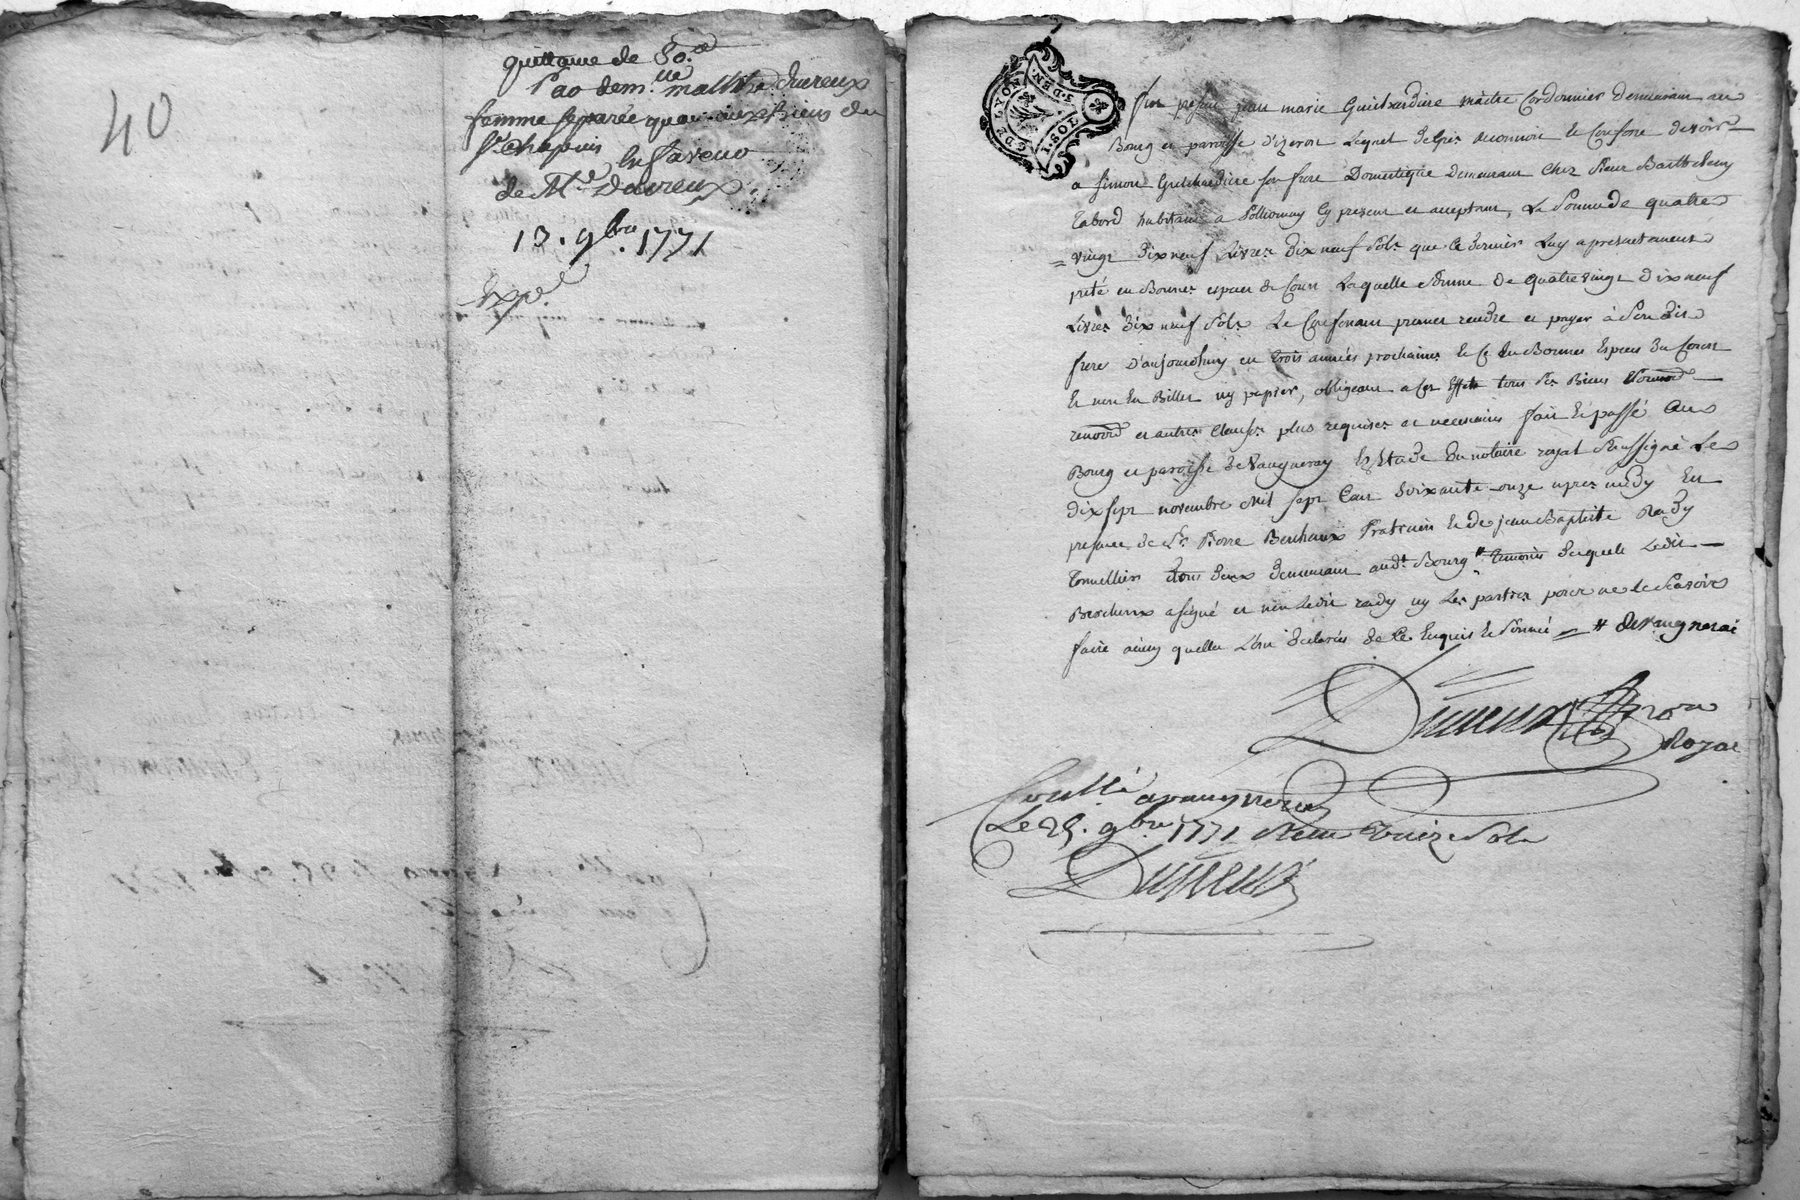 40
quittance de 80.#
femme separée quant aux biens du
Sr Chapuis En faveur
de Me. Dureux.
13. 9bre. 1771
Exp.é
G. DE LYON
1. SOL
3. DEN.
Fut présent jean marie Guicherdiere maitre Cordonnier demeurant au
Bourg et paroisse d'izeron Lequel de gré reconnoit et Confesse devoir
a simon Guicherdiere son frere Domestique demeurant Chez Sieur Barthelemy
habitant a Pollionnay Cy present et acceptant, La Somme de quatre
vingt dix neuf Livres dix neuf Sols que Ce dernier Luy a presentement
preté en Bonnes especes de Cours Laquelle Somme de quatre vingt dix neuf
Livres dix neuf Sols Le Confessant promet rendre et payer à Son dit
frere d'aujourdhuy en trois années prochaines Et Ce En Bonnes Especes du Cours
Et non En Billet ny papier, obligeant a Cet Effet tous Ses Biens
renond et autres Clauses plus requises et necessaires fait Et passé au
Bourg et paroisse de Vaugneray Etude du notaire royal Soussigné Le
dix sept novembre Mil sept Cent Soixante onze apres midy En
presence de Sr Pierre Berthaux Praticien Et de jean Baptiste Rady
Tonnellier tous deux demeurant audt Bourg # temoins desquels Ledit
Berthaux a signé et non Ledit rady ny Les parties pour ne le Scavoir
faire ainsy quelles L'ont declarés de Ce Enquis Et Sommé # de vaugnerai
Dureux nore
Royal
Conllé a vaugneray
Le 25. 9bre 1771 Reçu treize Sols
Dureux